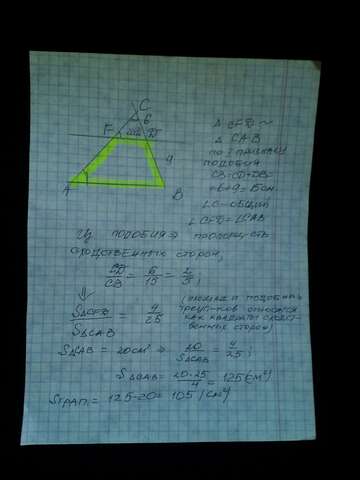 C
6
F
20
D
9
A
B
Δ CFD ~
Δ CAB
по I признаку
подобия
CB=CD+DB=
=6+9=15см
∠C-общий
∠CFD=∠CAB
Из подобия ⇒ пропорц-сть
сходственных сторон,
CD/CB = 6/15 = 2/5;
⇓
SΔCFD/SΔCAB = 4/25 (площади подобных
треуг-ков относятся
как квадраты сходст-
венных сторон)
= 20см² ⇒ 20/SΔCAB = 4/25;
SΔCAB = 20·25/4 = 125(см²)
Sтрап. = 125-20 = 105 (см²)